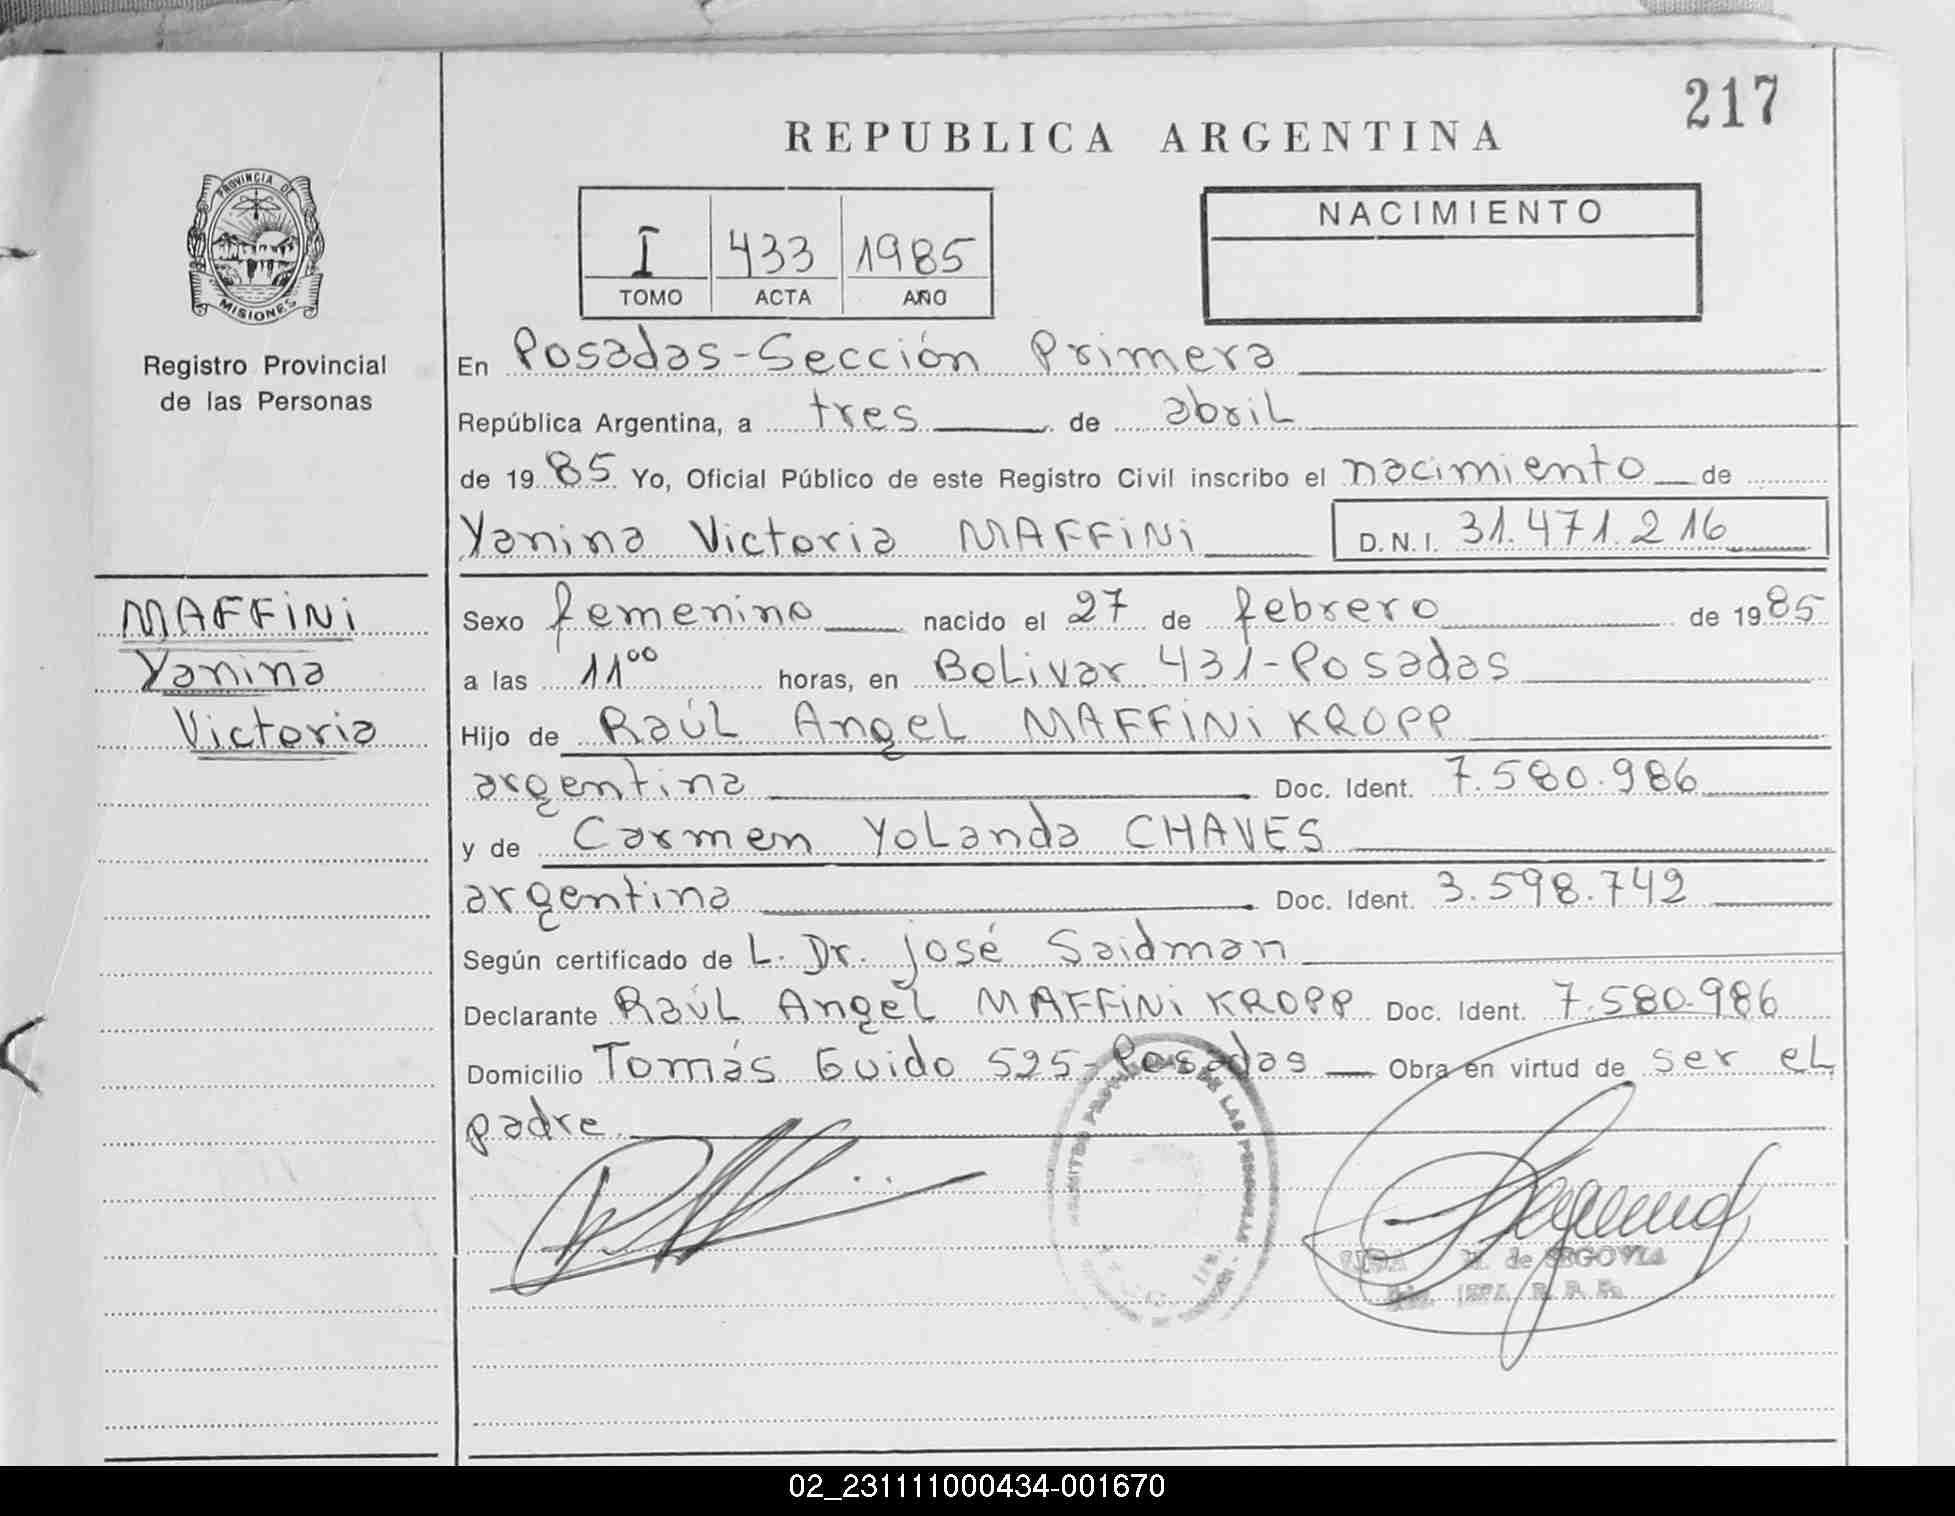 217
REPUBLICA ARGENTINA
PROVINCIA DE
MISIONES
Registro Provincial
de las Personas
I 433 1985
TOMO ACTA AÑO
NACIMIENTO
En Posadas-Sección Primera
República Argentina, a tres de abril
de 1985 Yo, Oficial Público de este Registro Civil inscribo el nacimiento de
Yanina Victoria MAFFiNi D.N.I. 31.471.216
MAFFiNi
Yanina
Victoria
Sexo femenino nacido el 27 de febrero de 1985
a las 11⁰⁰ horas, en Bolivar 431-Posadas
Hijo de Raúl Angel MAFFiNi KROPP
argentina Doc. Ident. 7.580.986
y de Carmen Yolanda CHAVES
argentina Doc. Ident. 3.598.742
Según certificado de L. Dr. José Saidman
Declarante Raúl Angel MAFFiNi KROPP Doc. Ident. 7.580.986
Domicilio Tomás Guido 525-Posadas Obra en virtud de ser el
padre
DE LAS PERSONAS
de SEGOVIA
02_231111000434-001670